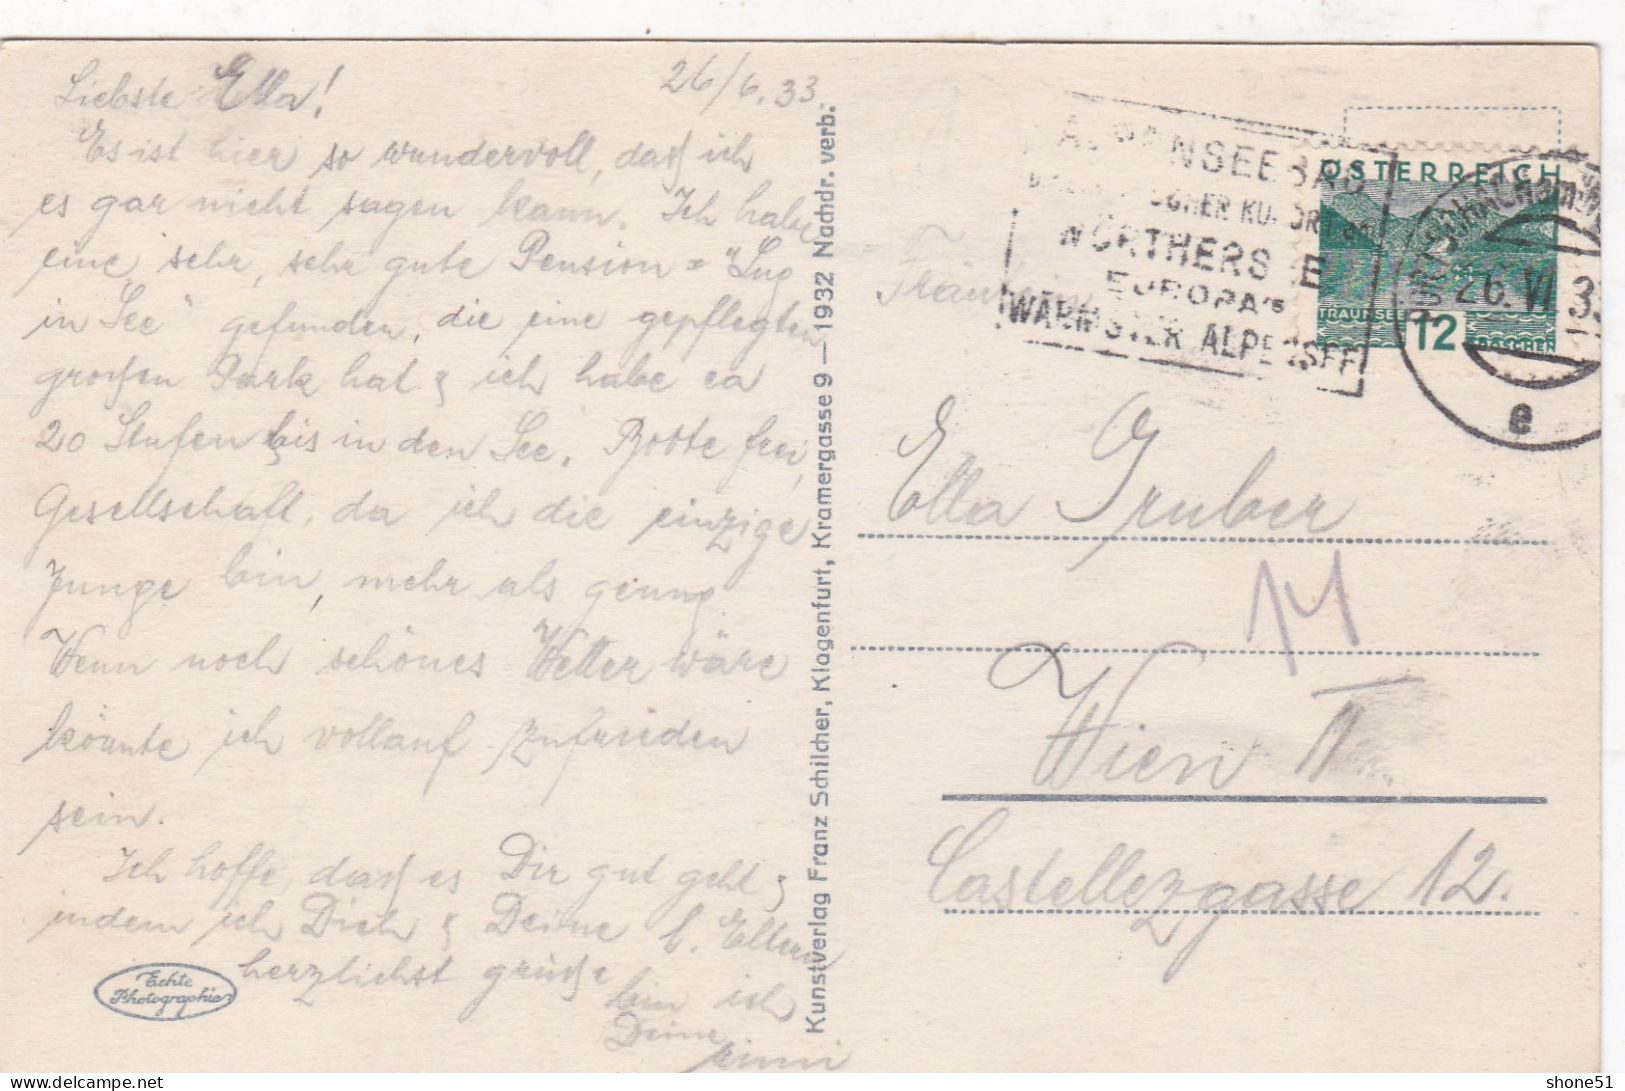 26/6.33
Liebste Ella!
Es ist hier so wundervoll, daß ich
es gar nicht sagen kann. Ich habe
eine, sehr, sehr gute Pension = "Lug
in See" gefunden, die eine gepflegten
großen Park hat & ich habe ca
20 Stufen bis in den See. Boote frei,
Gesellschaft, da ich die einzige
Junge bin, mehr als genug.
Wenn noch schönes Wetter wäre
könnte ich vollauf zufrieden
sein.
Ich hoffe, daß es Dir gut geht &
indem ich Dich & Deine l. Eltern
herzlichst grüße
bin ich
Deine
Echte
Photographie
Kunstverlag Franz Schilcher, Klagenfurt, Kramergasse 9 — 1932 Nachdr. verb.
ALPENSEEBAD
WÖRTHERSEE
EUROPA'S
WÄRMSTER ALPENSEE
ÖSTERREICH
TRAUNSEE
12
GROSCHEN
26.VI.33
e
Fräulein
Ella Gruber
Wien II
Castellezgasse 12.
delcampe.net
shone51